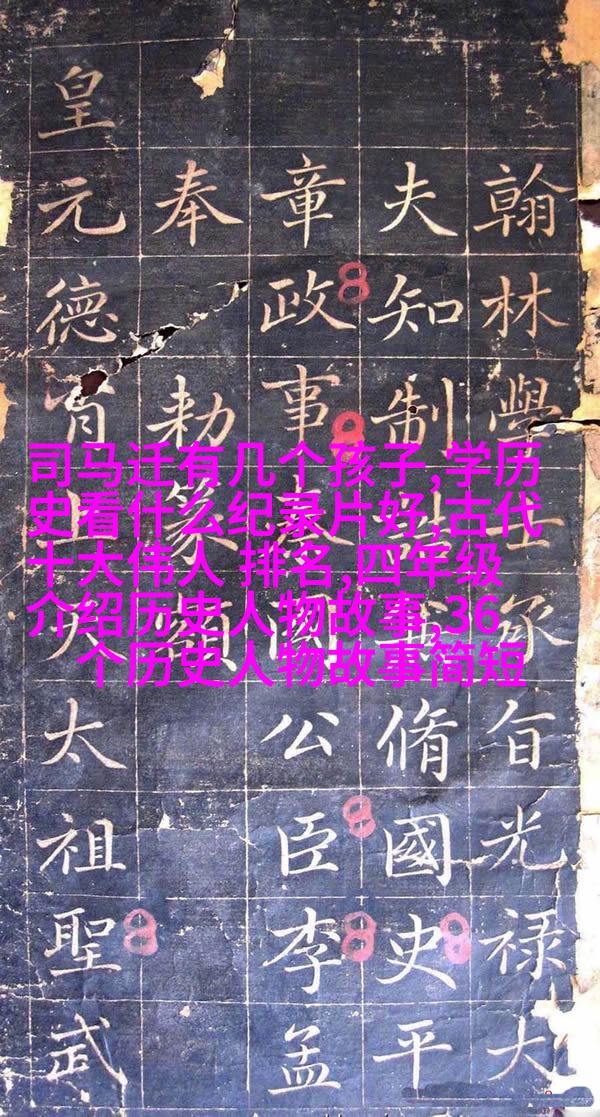 司马迁有几个孩子,学历
史看什么纪录片好,古代
十大伟人 排名,四年级
介绍历史人物故事,36
个历史人物故事简短
翰林學士承旨光禄大
夫知制誥脩國史平
章政事國公臣李孟
奉勅篆額
皇元德上天太祖聖武